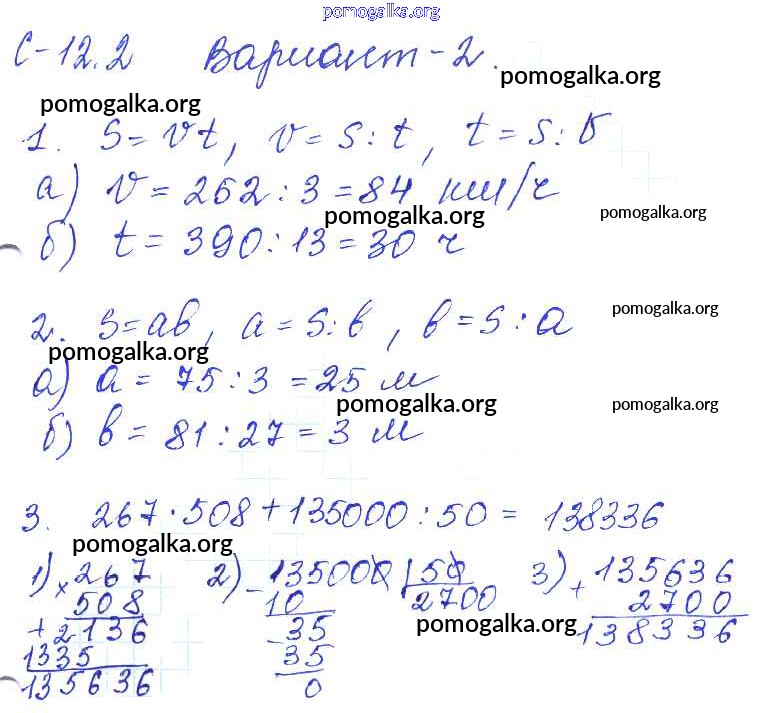 pomogalka.org
С-12.2 Вариант-2.
pomogalka.org
pomogalka.org
1. S=Vt, V=S:t, t=S:V
а) V=262:3=84 км/ч
pomogalka.org pomogalka.org
б) t=390:13=30 ч
2. S=ab, a=S:b, b=S:a
pomogalka.org
pomogalka.org
а) a=75:3=25 м
pomogalka.org pomogalka.org
б) b=81:27=3 м
3. 267·508+135000:50=138336
pomogalka.org
1) ×267 2) -135000 |50 3) +135636
508 10 2700 2700
+2136 -35 138336
pomogalka.org
1335 35
135636 0